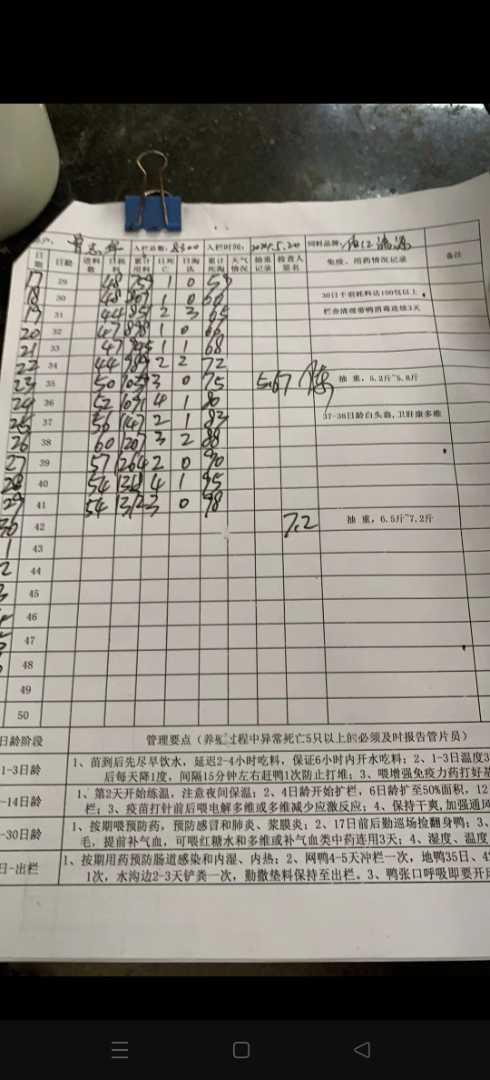 入栏总数: 8300 入栏时间: 2024.5.20 饲料品牌:
日期 日龄 进料数 日耗料 累计用料 日死亡 日淘汰 累计死淘 天气情况 抽重记录 检查人签名 免疫、用药情况记录 备注
17 29 48 1 0
18 30 48 1 0 30日千羽耗料达100包以上
19 31 44 2 3 65 栏舍清理带鸭消毒连续3天
20 32 47 1 0 66
21 33 47 1 1 68
22 34 44 2 2 72
23 35 50 3 0 75 5.67 抽 重,5.2斤~5.8斤
24 36 52 4 1 80
25 37 56 1147 2 1 83 37-38日龄白头翁,卫肝康多维
26 38 60 1207 3 2 88
27 39 57 1264 2 0 90
28 40 54 1318 4 1 95
29 41 54 1372 3 0 98
30 42 7.2 抽 重,6.5斤~7.2斤
1 43
2 44
3 45
46
47
48
49
50
日龄阶段 管理要点(养殖过程中异常死亡5只以上的必须及时报告管片员)
1-3日龄 1、苗到后先尽早饮水,延迟2-4小时吃料,保证6小时内开水吃料;2、1-3日温度3
后每天降1度,间隔15分钟左右赶鸭1次防止打堆;3、喂增强免疫力药打好基
-14日龄 1、第2天开始练温,注意夜间保温;2、4日龄开始扩栏,6日龄扩至50%面积,12
栏;3、疫苗打针前后喂电解多维或多维减少应激反应;4、保持干爽,加强通风
-30日龄 1、按期喂预防药,预防感冒和肺炎、浆膜炎;2、17日前后勤巡场捡翻身鸭;3、
毛,提前补气血,可喂红糖水和多维或补气血类中药连用3天;4、湿度、温度
日-出栏 1、按期用药预防肠道感染和内湿、内热;2、网鸭4-5天冲栏一次,地鸭35日、4
1次,水沟边2-3天铲粪一次,勤撒垫料保持至出栏。3、鸭张口呼吸即要开